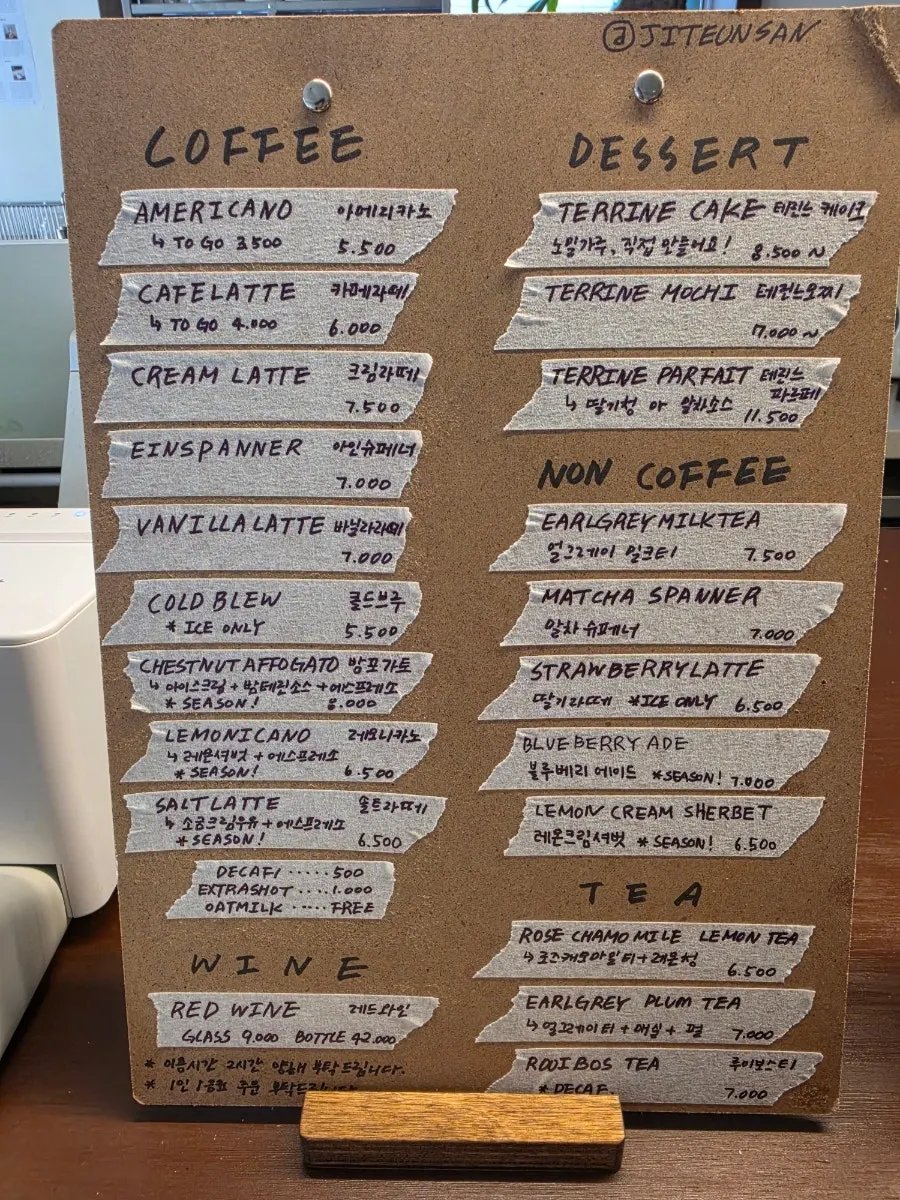 @JITEUNSAN
COFFEE
AMERICANO 아메리카노
↳ TO GO 3.500 5.500
CAFELATTE 카페라떼
↳ TO GO 4.000 6.000
CREAM LATTE 크림라떼
7.500
EINSPANNER 아인슈페너
7.000
VANILLA LATTE 바닐라라떼
7.000
COLD BLEW 콜드브루
* ICE ONLY 5.500
CHESTNUT AFFOGATO 밤포가토
↳ 아이스크림 + 밤테린소스 + 에스프레소
* SEASON! 8.000
LEMONICANO 레모니카노
↳ 레몬셔벗 + 에스프레소
* SEASON! 6.500
SALT LATTE 솔트라떼
↳ 소금크림우유 + 에스프레소
* SEASON! 6.500
DECAF ..... 500
EXTRASHOT .... 1.000
OATMILK ..... FREE
WINE
RED WINE 레드와인
GLASS 9.000 BOTTLE 42.000
* 이용시간 2시간 양해 부탁드립니다.
* 1인 1음료 주문 부탁드립니다
DESSERT
TERRINE CAKE 테린느 케이크
노밀가루, 직접 만들어요! 8.500 ~
TERRINE MOCHI 테린느모찌
7.000 ~
TERRINE PARFAIT 테린느
파르페
↳ 딸기청 or 말차소스 11.500
NON COFFEE
EARLGREY MILKTEA
얼그레이 밀크티 7.500
MATCHA SPANNER
말차 슈페너 7.000
STRAWBERRY LATTE
딸기라떼 *ICE ONLY 6.500
BLUEBERRY ADE
블루베리 에이드 *SEASON! 7.000
LEMON CREAM SHERBET
레몬크림셔벗 * SEASON! 6.500
TEA
ROSE CHAMOMILE LEMON TEA
↳ 로즈캐모마일티 + 레몬청
6.500
EARLGREY PLUM TEA
↳ 얼그레이티 + 매실 + 펄 7.000
ROOIBOS TEA 루이보스티
* DECAF 7.000